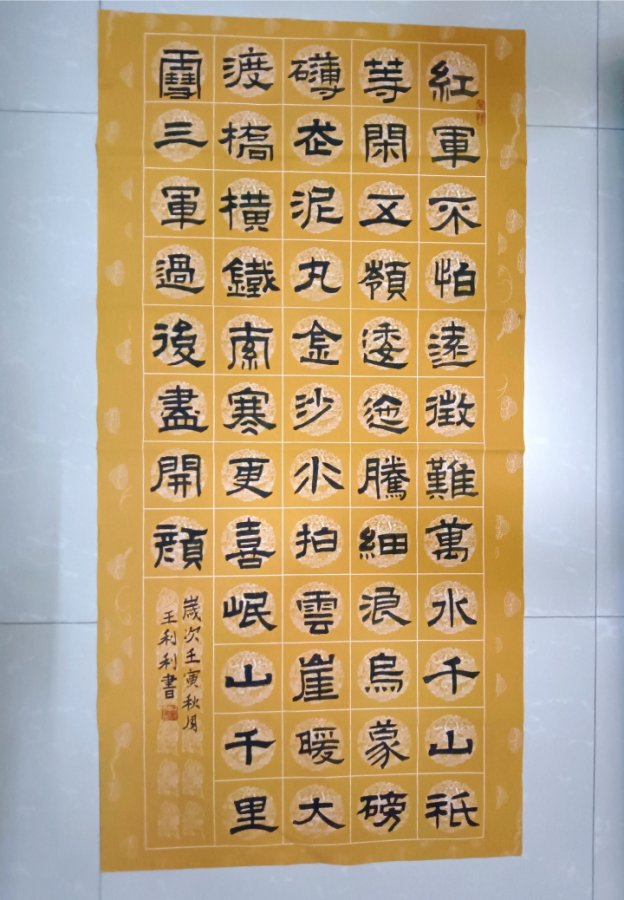 紅軍不怕遠徵難萬水千山祇
等閑五嶺逶迤騰細浪烏蒙磅
礴走泥丸金沙水拍雲崖暖大
渡橋橫鐵索寒更喜岷山千里
雪三軍過後盡開顏
歲次壬寅秋月
王利利書